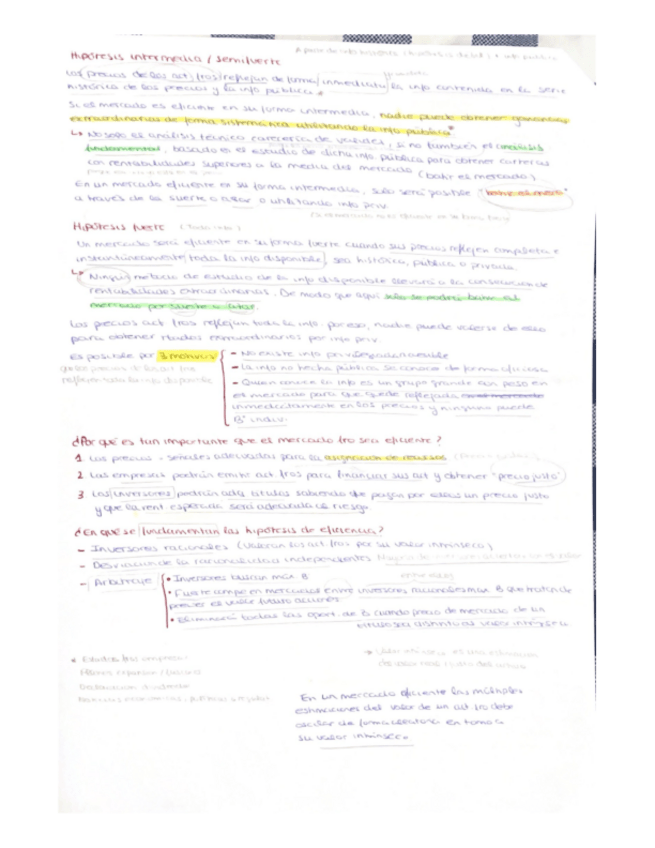 Hipótesis intermedia / semifuerte
Los precios de los act. fros reflejan de forma inmediata la info contenida en la serie
histórica de los precios y la info pública *
Si el mercado es eficiente en su forma intermedia, nadie puede obtener ganancias
extraordinarias de forma sistemática utilizando la info pública*
↳ No solo el análisis técnico carecería de validez, si no también el análisis
fundamental, basado en el estudio de dicha info pública para obtener carteras
con rentabilidades superiores a la media del mercado (batir el mercado)
En un mercado eficiente en su forma intermedia, solo será posible "batir el merc"
a través de la suerte o azar o utilizando info priv.
Hipótesis fuerte (toda info)
Un mercado será eficiente en su forma fuerte cuando sus precios reflejen completa e
instantáneamente toda la info disponible, sea histórica, pública o privada.
↳ Ningún método de estudio de la info disponible llevará a la consecución de
rentabilidades extraordinarias. De modo que aquí solo se podrá batir al
mercado por suerte o azar.
Los precios act fros reflejan toda la info, por eso, nadie puede valerse de eso
para obtener rtados extraordinarios por info priv.
Es posible por 3 motivos
que los precios de los act. fros
reflejen toda la info disponible
- No existe info privilegiada
- La info no hecha pública se conoce de forma
- Quien conoce la info es un grupo grande con peso en
el mercado para que quede reflejada en el mercado
inmediatamente en los precios y ninguno puede
Bº indiv.
¿Por qué es tan importante que el mercado fro sea eficiente?
1 Los precios - señales adecuadas para la asignación de recursos
2 Las empresas podrán emitir act fros para financiar sus act y obtener "precio justo"
3 Los inversores podrán adq títulos sabiendo que pagan por ellos un precio justo
y que la rent. esperada será adecuada al riesgo.
¿En qué se fundamentan las hipótesis de eficiencia?
- Inversores racionales (valoran los act. fros por su valor intrínseco)
- Desviación de la racionalidad independientes
- Arbitraje
• Inversores buscan max Bº
• Fuerte en mercados entre inversores racionales max Bº que tratan de
predecir el valor futuro acciones.
• Eliminará todas las oport. de Bº cuando precio de mercado de un
título sea distinto al valor intrínseco.
* Estados fros empresa
Planes expansión
Declaración dividendo
→ Valor intrínseco es una estimación
En un mercado eficiente las múltiples
estimaciones del valor de un act. fro debe
oscilar de forma aleatoria en torno a
su valor intrínseco